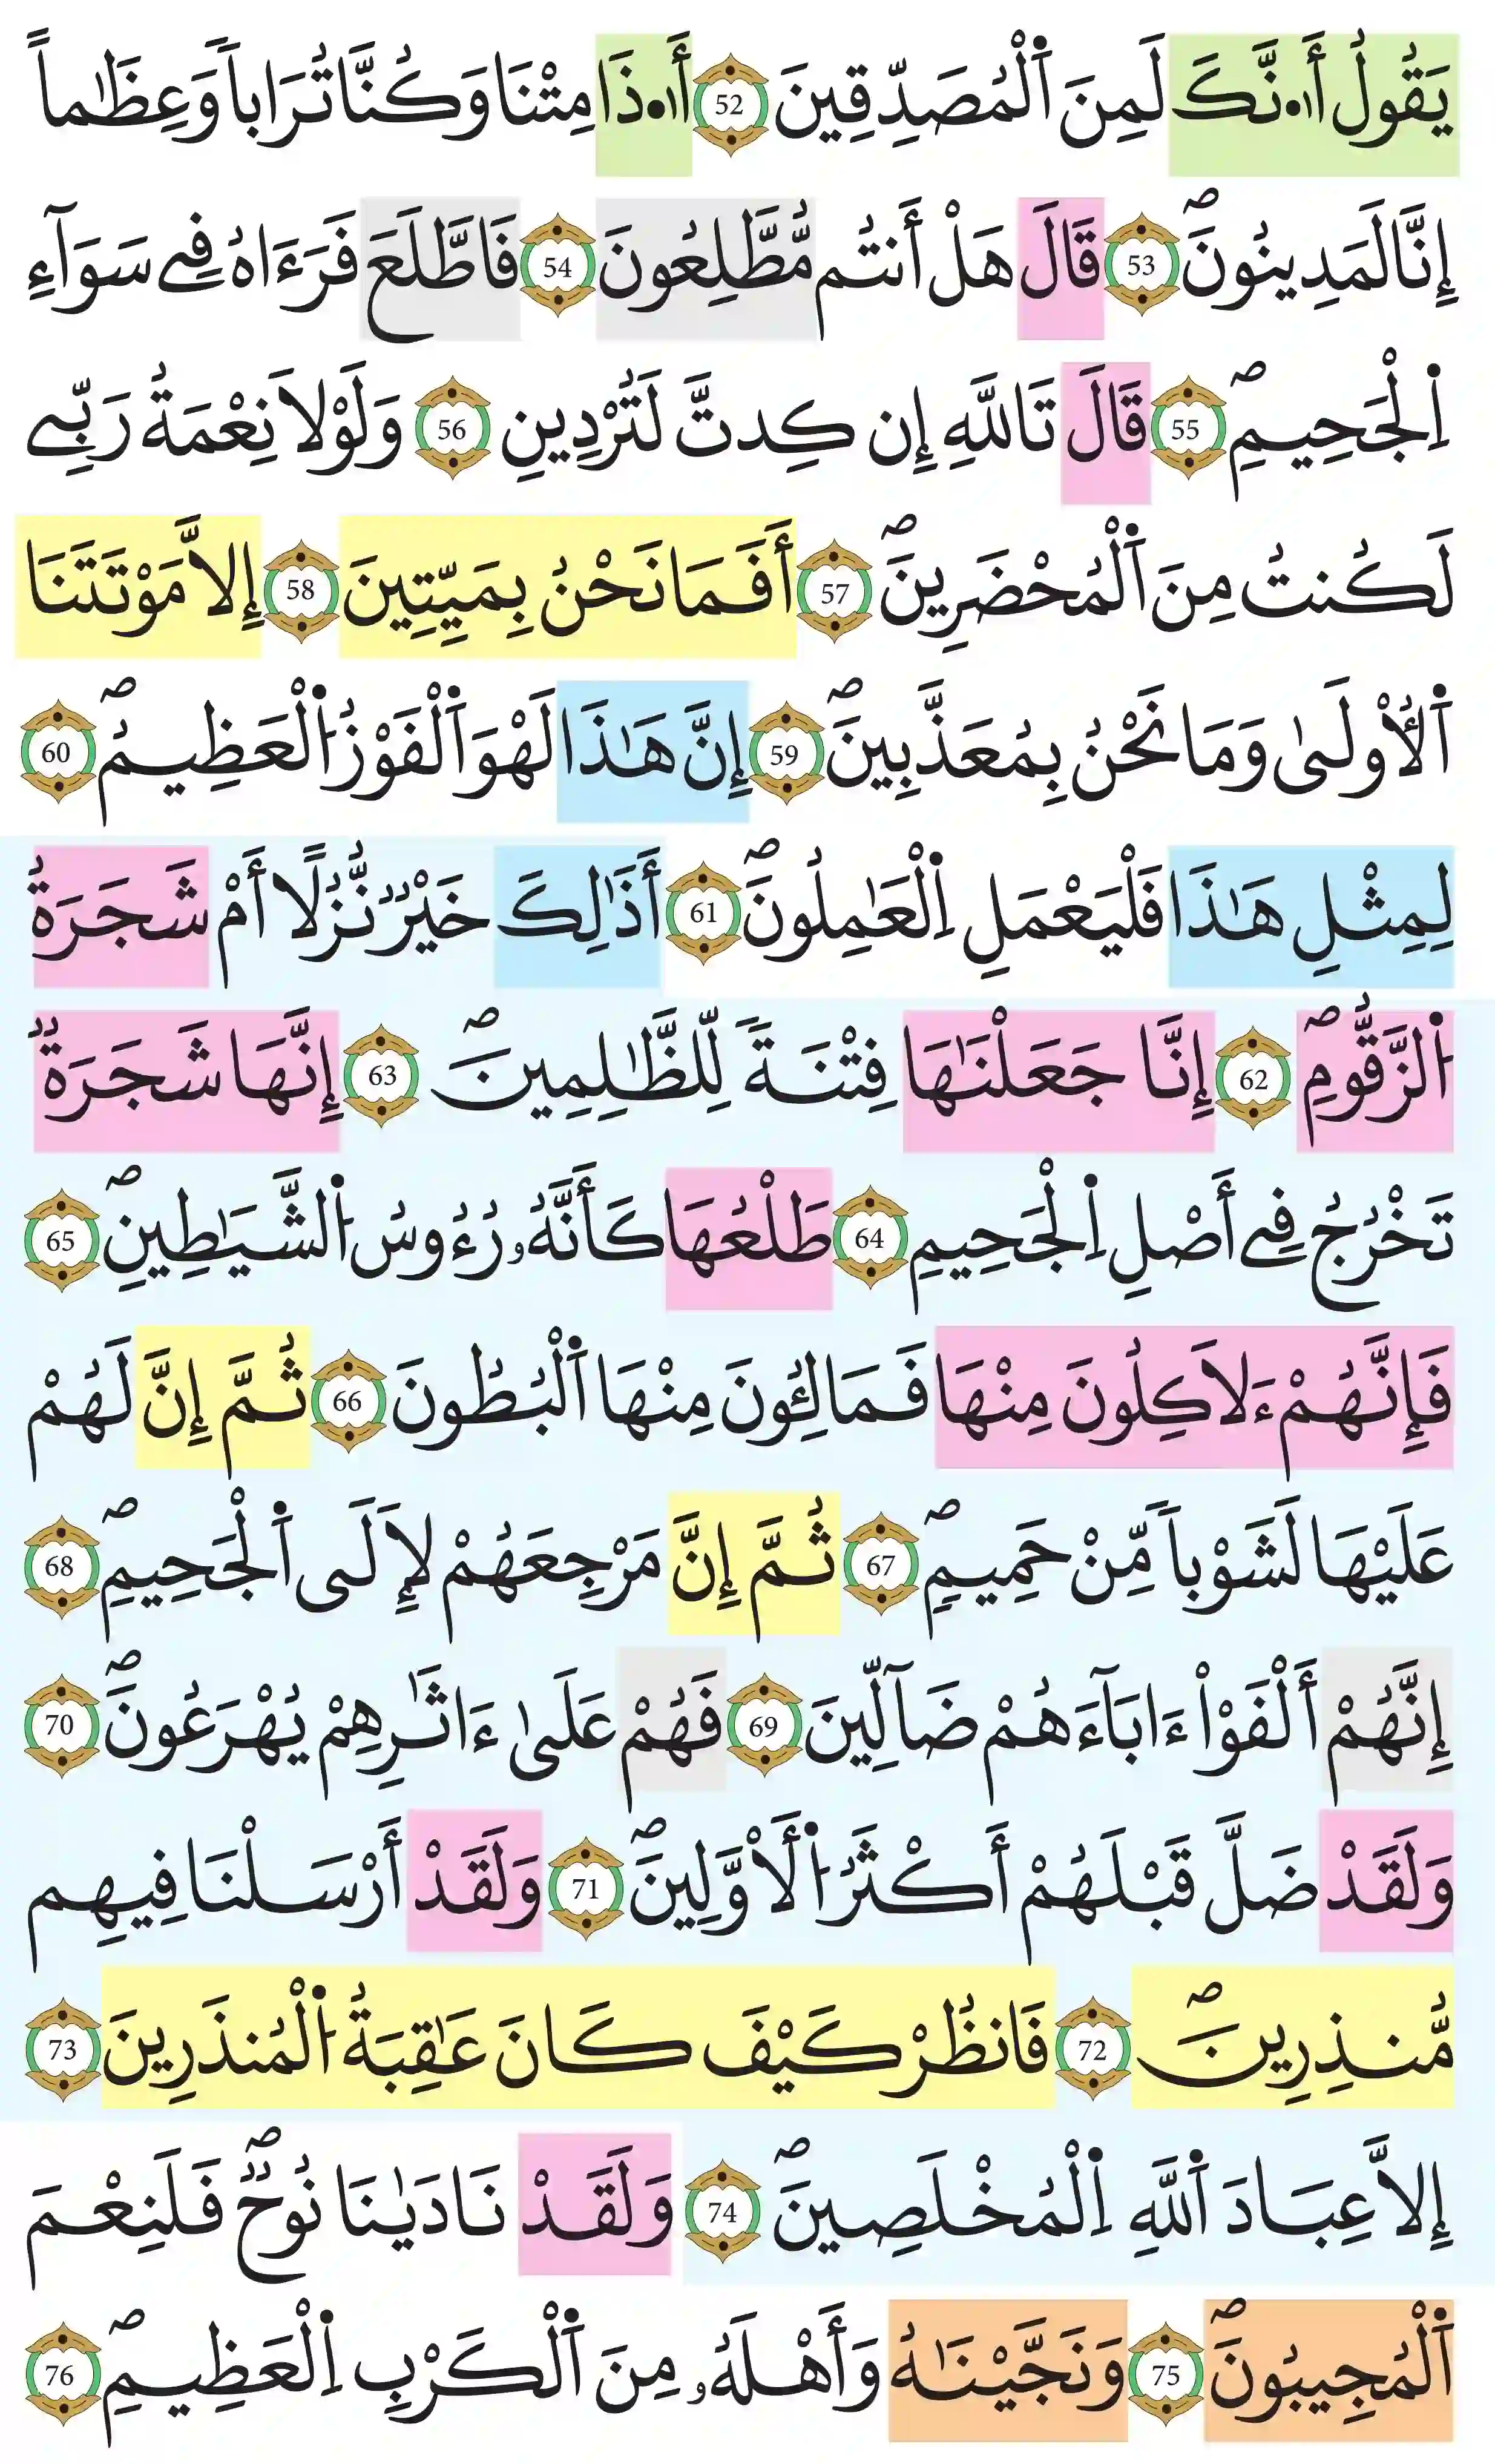 يَقُولُ أَ.نَّكَ لَمِنَ اَ۬لْمُصَدِّقِينَ 52 أَ.ذَا مِتْنَا وَكُنَّا تُرَاباٗ وَعِظَٰماً
إِنَّا لَمَدِينُونَۖ 53 قَالَ هَلْ أَنتُم مُّطَّلِعُونَ 54 فَاطَّلَعَ فَرَءَاهُ فِے سَوَآءِ
اِ۬لْجَحِيمِۖ 55 قَالَ تَاللَّهِ إِن كِدتَّ لَتُرْدِينِ 56 وَلَوْلَا نِعْمَةُ رَبِّے
لَكُنتُ مِنَ اَ۬لْمُحْضَرِينَۖ 57 أَفَمَا نَحْنُ بِمَيِّتِينَ 58 إِلَّا مَوْتَتَنَا
اَ۬لُاولَىٰ وَمَا نَحْنُ بِمُعَذَّبِينَۖ 59 إِنَّ هَٰذَا لَهْوَ اَ۬لْفَوْزُ اُ۬لْعَظِيمُۖ 60
لِمِثْلِ هَٰذَا فَلْيَعْمَلِ اِ۬لْعَٰمِلُونَۖ 61 أَذَٰلِكَ خَيْرٞ نُّزُلًا أَمْ شَجَرَةُ
اُ۬لزَّقُّومِۖ 62 إِنَّا جَعَلْنَٰهَا فِتْنَةٗ لِّلظَّٰلِمِينَۖ 63 إِنَّهَا شَجَرَةٞ
تَخْرُجُ فِے أَصْلِ اِ۬لْجَحِيمِ 64 طَلْعُهَا كَأَنَّهُۥ رُءُوسُ اُ۬لشَّيَٰطِينِۖ 65
فَإِنَّهُمْ ءَلَاكِلُونَ مِنْهَا فَمَالِـُٔونَ مِنْهَا اَ۬لْبُطُونَ 66 ثُمَّ إِنَّ لَهُمْ
عَلَيْهَا لَشَوْباٗ مِّنْ حَمِيمٖۖ 67 ثُمَّ إِنَّ مَرْجِعَهُمْ لَإِلَى اَ۬لْجَحِيمِۖ 68
إِنَّهُمْ أَلْفَوْاْ ءَابَآءَهُمْ ضَآلِّينَ 69 فَهُمْ عَلَىٰ ءَاثَٰرِهِمْ يُهْرَعُونَۖ 70
وَلَقَدْ ضَلَّ قَبْلَهُمْ أَكْثَرُ اُ۬لَأْوَّلِينَۖ 71 وَلَقَدْ أَرْسَلْنَا فِيهِم
مُّنذِرِينَۖ 72 فَانظُرْ كَيْفَ كَانَ عَٰقِبَةُ اُ۬لْمُنذَرِينَ 73
إِلَّا عِبَادَ اَ۬للَّهِ اِ۬لْمُخْلَصِينَۖ 74 وَلَقَدْ نَادَيٰنَا نُوحٞۖ فَلَنِعْمَ
اَ۬لْمُجِيبُونَۖ 75 وَنَجَّيْنَٰهُ وَأَهْلَهُۥ مِنَ اَ۬لْكَرْبِ اِ۬لْعَظِيمِۖ 76